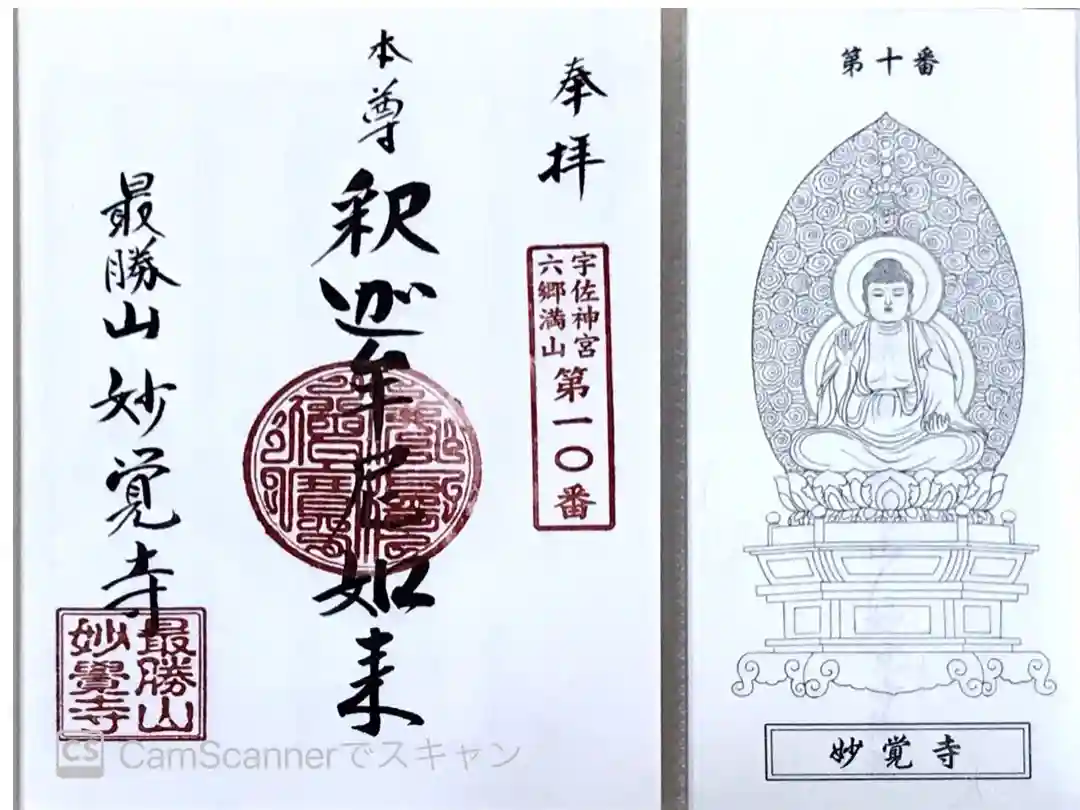 奉拝
宇佐神宮
六郷満山
第一〇番
本尊
釈迦牟尼如来
最勝山 妙覚寺
最勝山
妙覺寺
第十番
妙覚寺
CS CamScannerでスキャン